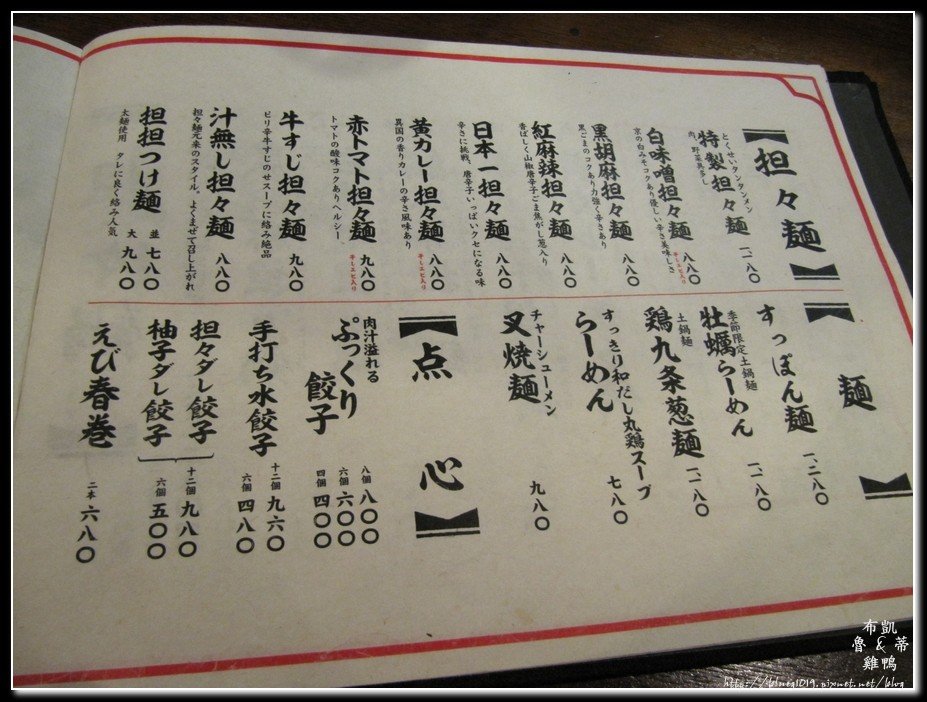 担々麺
とくせいタンタンメン
特製担々麺 一、一八〇
肉、野菜具多し
白味噌担々麺 八八〇
干しエビ入り
京の白みそコクあり優しい辛さ美味しさ
黒胡麻担々麺 八八〇
黒ごまのコクあり力強く辛さあり
紅麻辣担々麺 八八〇
香ばしく山椒唐辛子ごま焦がし葱入り
日本一担々麺 八八〇
辛さに挑戦、唐辛子いっぱいクセになる味
黄カレー担々麺 八八〇
干しエビ入り
異国の香りカレーの辛さ風味あり
赤トマト担々麺 九八〇
干しエビ入り
トマトの酸味コクありヘルシー、
牛すじ担々麺 九八〇
ピリ辛牛すじのせスープに絡み絶品
汁無し担々麺 八八〇
担々麺元来のスタイル。よくまぜて召し上がれ
担担つけ麺 並 七八〇
大 九八〇
太麺使用 タレに良く絡み人気
麺
すっぽん麺 一、二八〇
季節限定土鍋麺
牡蠣らーめん 一、一八〇
鶏九条葱麺 一、一八〇
土鍋麺
すっきり和だし丸鶏スープ
らーめん 七八〇
チャーシューメン
叉焼麺 九八〇
点心
肉汁溢れる
ぷっくり餃子 八個 八〇〇
六個 六〇〇
四個 四〇〇
手打ち水餃子 十二個 九六〇
六個 四八〇
担々ダレ餃子 十二個 九八〇
柚子ダレ餃子 六個 五〇〇
えび春巻 二本 六八〇
布凱
魯&蒂
雞鴨
http://blueg1019.pixnet.net/blog